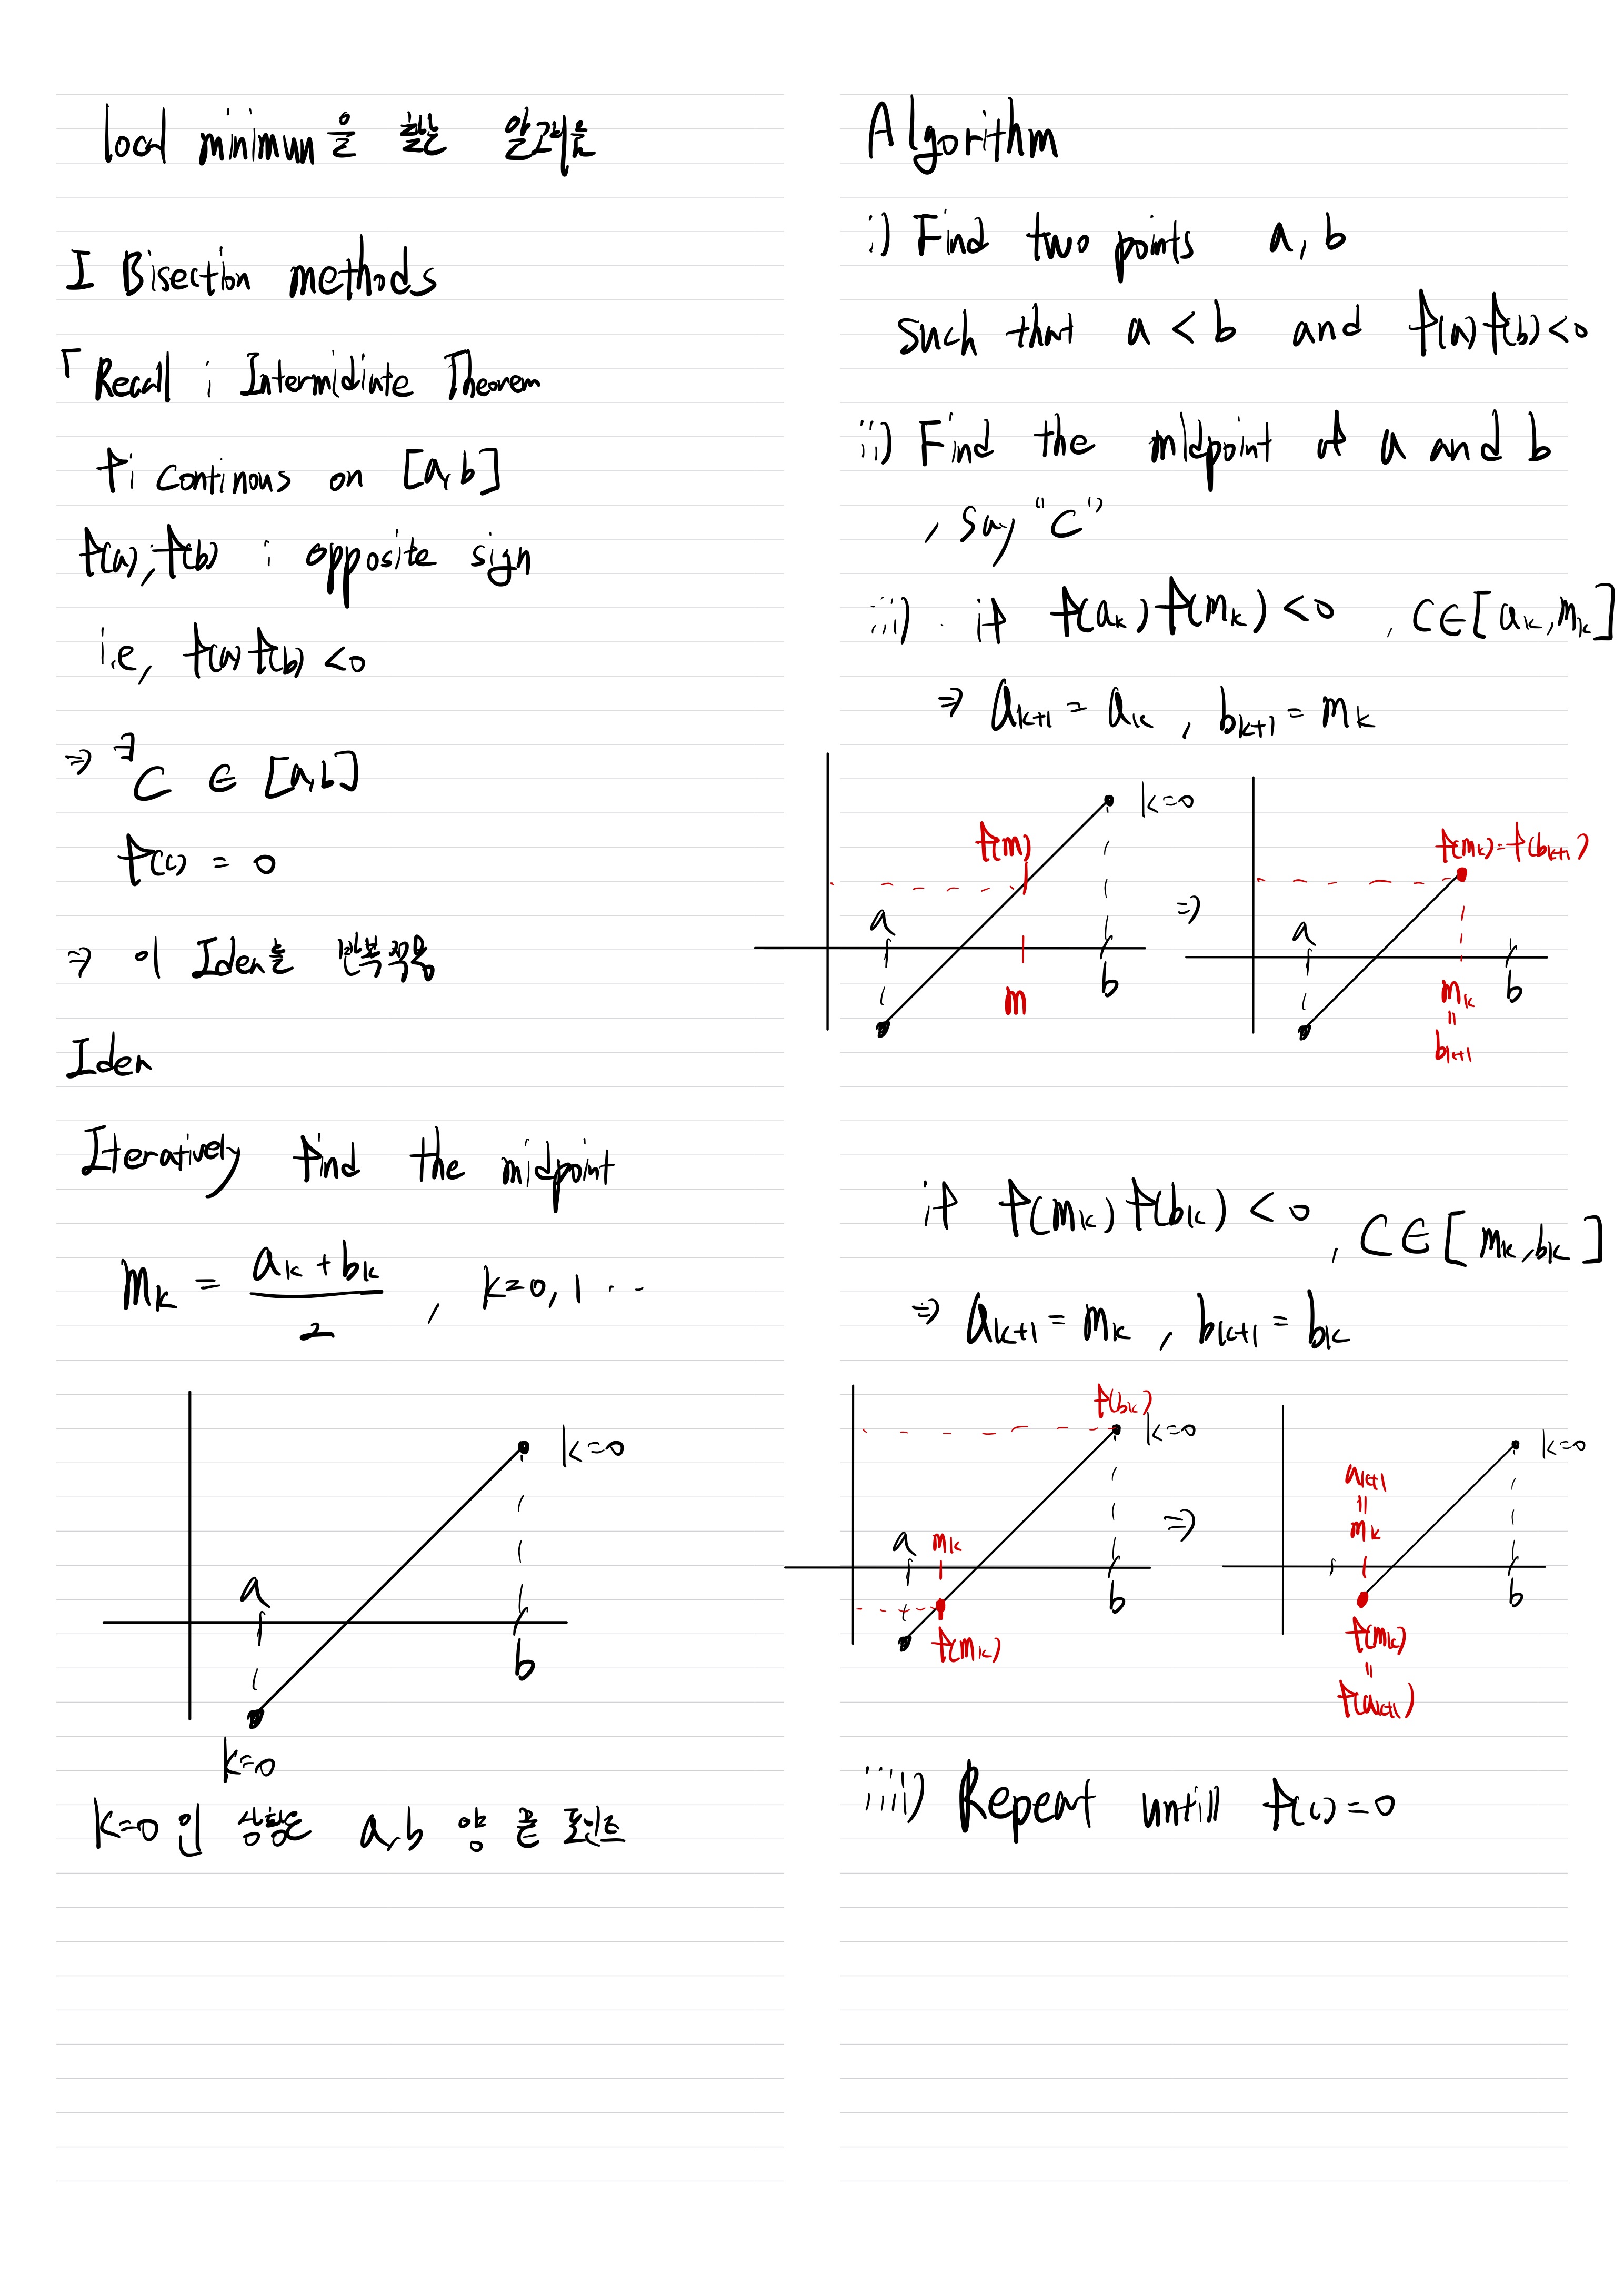 local minimun을 찾는 알고리즘
I Bisection methods
「 Recall ; Intermidiate Theorem
f; continous on [a,b]
f(a), f(b) : opposite sign
i.e, f(a)f(b) <0
⇒ ∃C ∈ [a,b]
f(c) = 0
⇒ 이 Idea를 반복적용
Idea
Iteratively find the midpoint
mk = (ak + bk)/2 , k=0, 1 ...
k=0
a
b
k=0
k=0 인 상황은 a,b 양 끝 포인트
Algorithm
i) Find two points a, b
such that a < b and f(a)f(b)<0
ii) Find the midpoint of a and b
, say "C"
iii) if f(ak)f(mk) <0 , C∈[ak,mk]
⇒ ak+1 = ak , bk+1 = mk
k=0
f(m)
a
b
m
⇒
f(mk)=f(bk+1)
a
b
mk
=
bk+1
if f(mk)f(bk) <0 , C∈[mk,bk]
⇒ ak+1 = mk , bk+1 = bk
f(bk)
k=0
a mk
b
f(mk)
⇒
k=0
ak+1
=
mk
b
f(mk)
=
f(ak+1)
iiii) Repeat untill f(c)=0